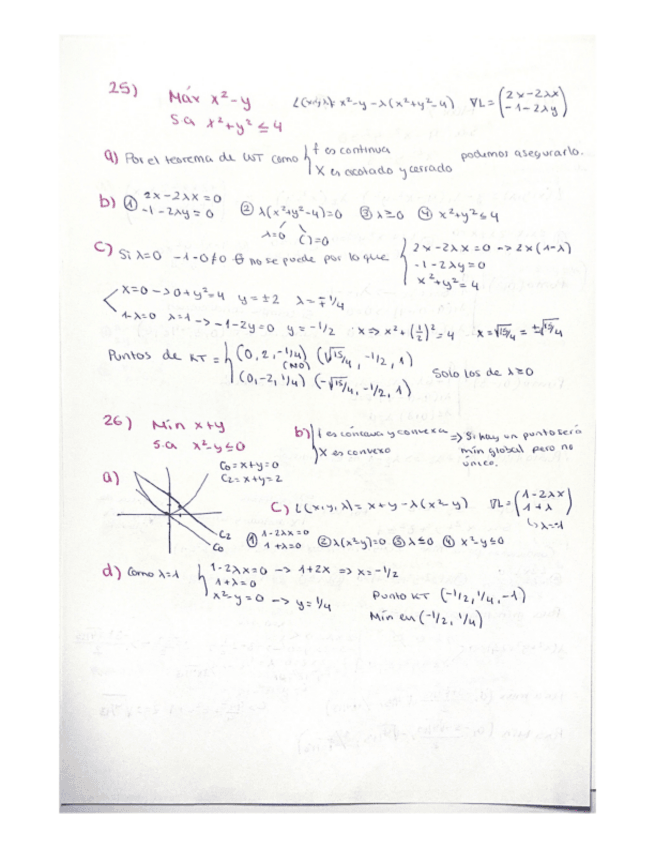 25) Máx x²-y    L(x,y,λ)= x²-y-λ(x²+y²-4)    ∇L = (2x-2λx
-1-2λy)
S.a x²+y² ≤ 4
a) Por el teorema de WT como { f es continua
X es acotado y cerrado    podemos asegurarlo.
b) ① 2x-2λx=0
-1-2λy=0    ② λ(x²+y²-4)=0    ③ λ≥0    ④ x²+y²≤4
λ=0    ( )=0
c) Si λ=0    -1-0≠0    no se puede por lo que { 2x-2λx=0 -> 2x(1-λ)
-1-2λy=0
x²+y²=4
x=0 -> 0+y²=4    y=±2    λ=∓1/4
1-λ=0    λ=1 -> -1-2y=0    y=-1/2    x => x²+(1/2)²=4    x=√15/4 = ±√15/4
Puntos de KT = { (0,2,-1/4) (√15/4, -1/2, 1)
(NO)
(0,-2,1/4) (-√15/4, -1/2, 1)    Solo los de λ≥0
26) Min x+y
s.a x²-y≤0
b) { f es cóncava y convexa => Si hay un punto será
X es convexo    mín global pero no
único.
a) C₀=x+y=0
C₂=x+y=2
C₂
C₀
c) L(x,y,λ)=x+y-λ(x²-y)    ∇L=(1-2λx
1+λ)
↳λ=-1
① 1-2λx=0
1+λ=0    ② λ(x²-y)=0    ③ λ≤0    ④ x²-y≤0
d) Como λ=1 { 1-2λx=0 -> 1+2x => x=-1/2
1+λ=0
x²-y=0 -> y=1/4
Punto KT (-1/2, 1/4, -1)
Mín en (-1/2, 1/4)